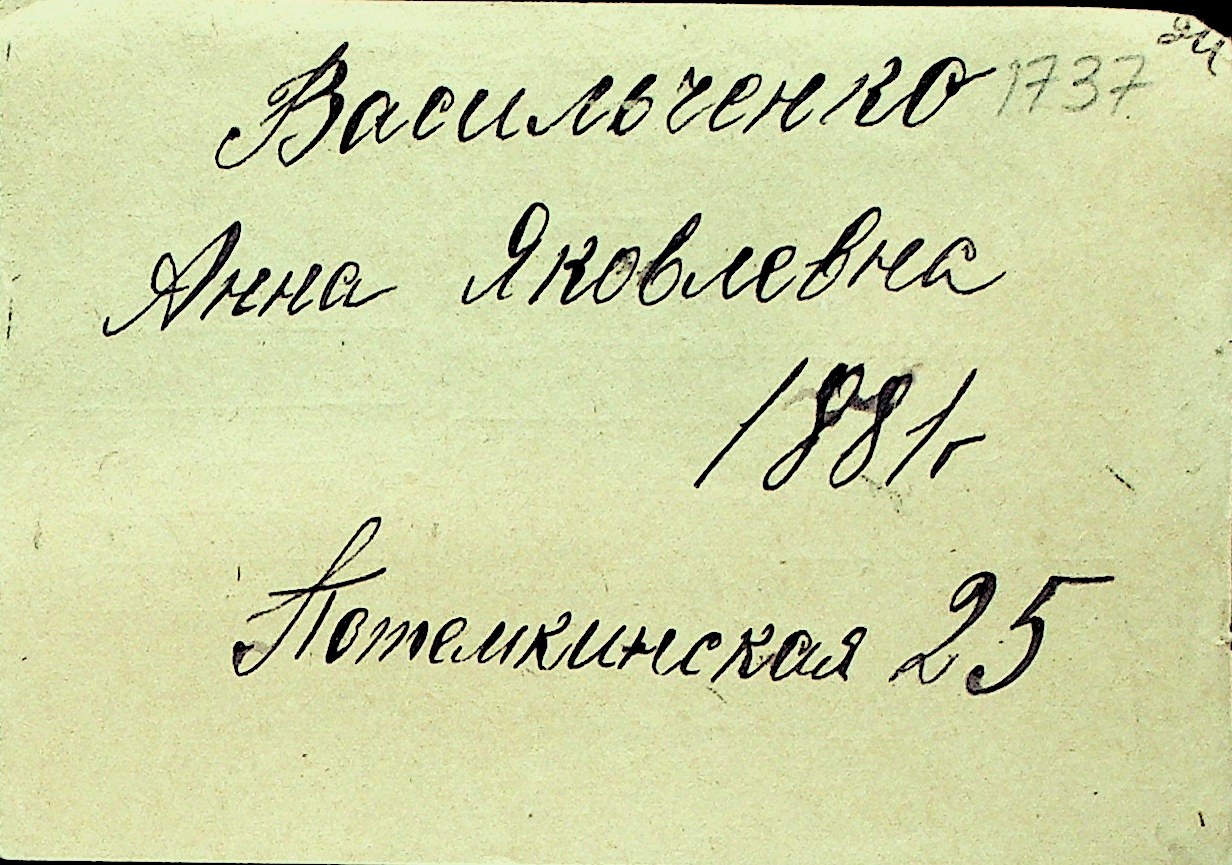 Васильченко 1737
Анна Яковлевна
1881г
Потемкинская 25